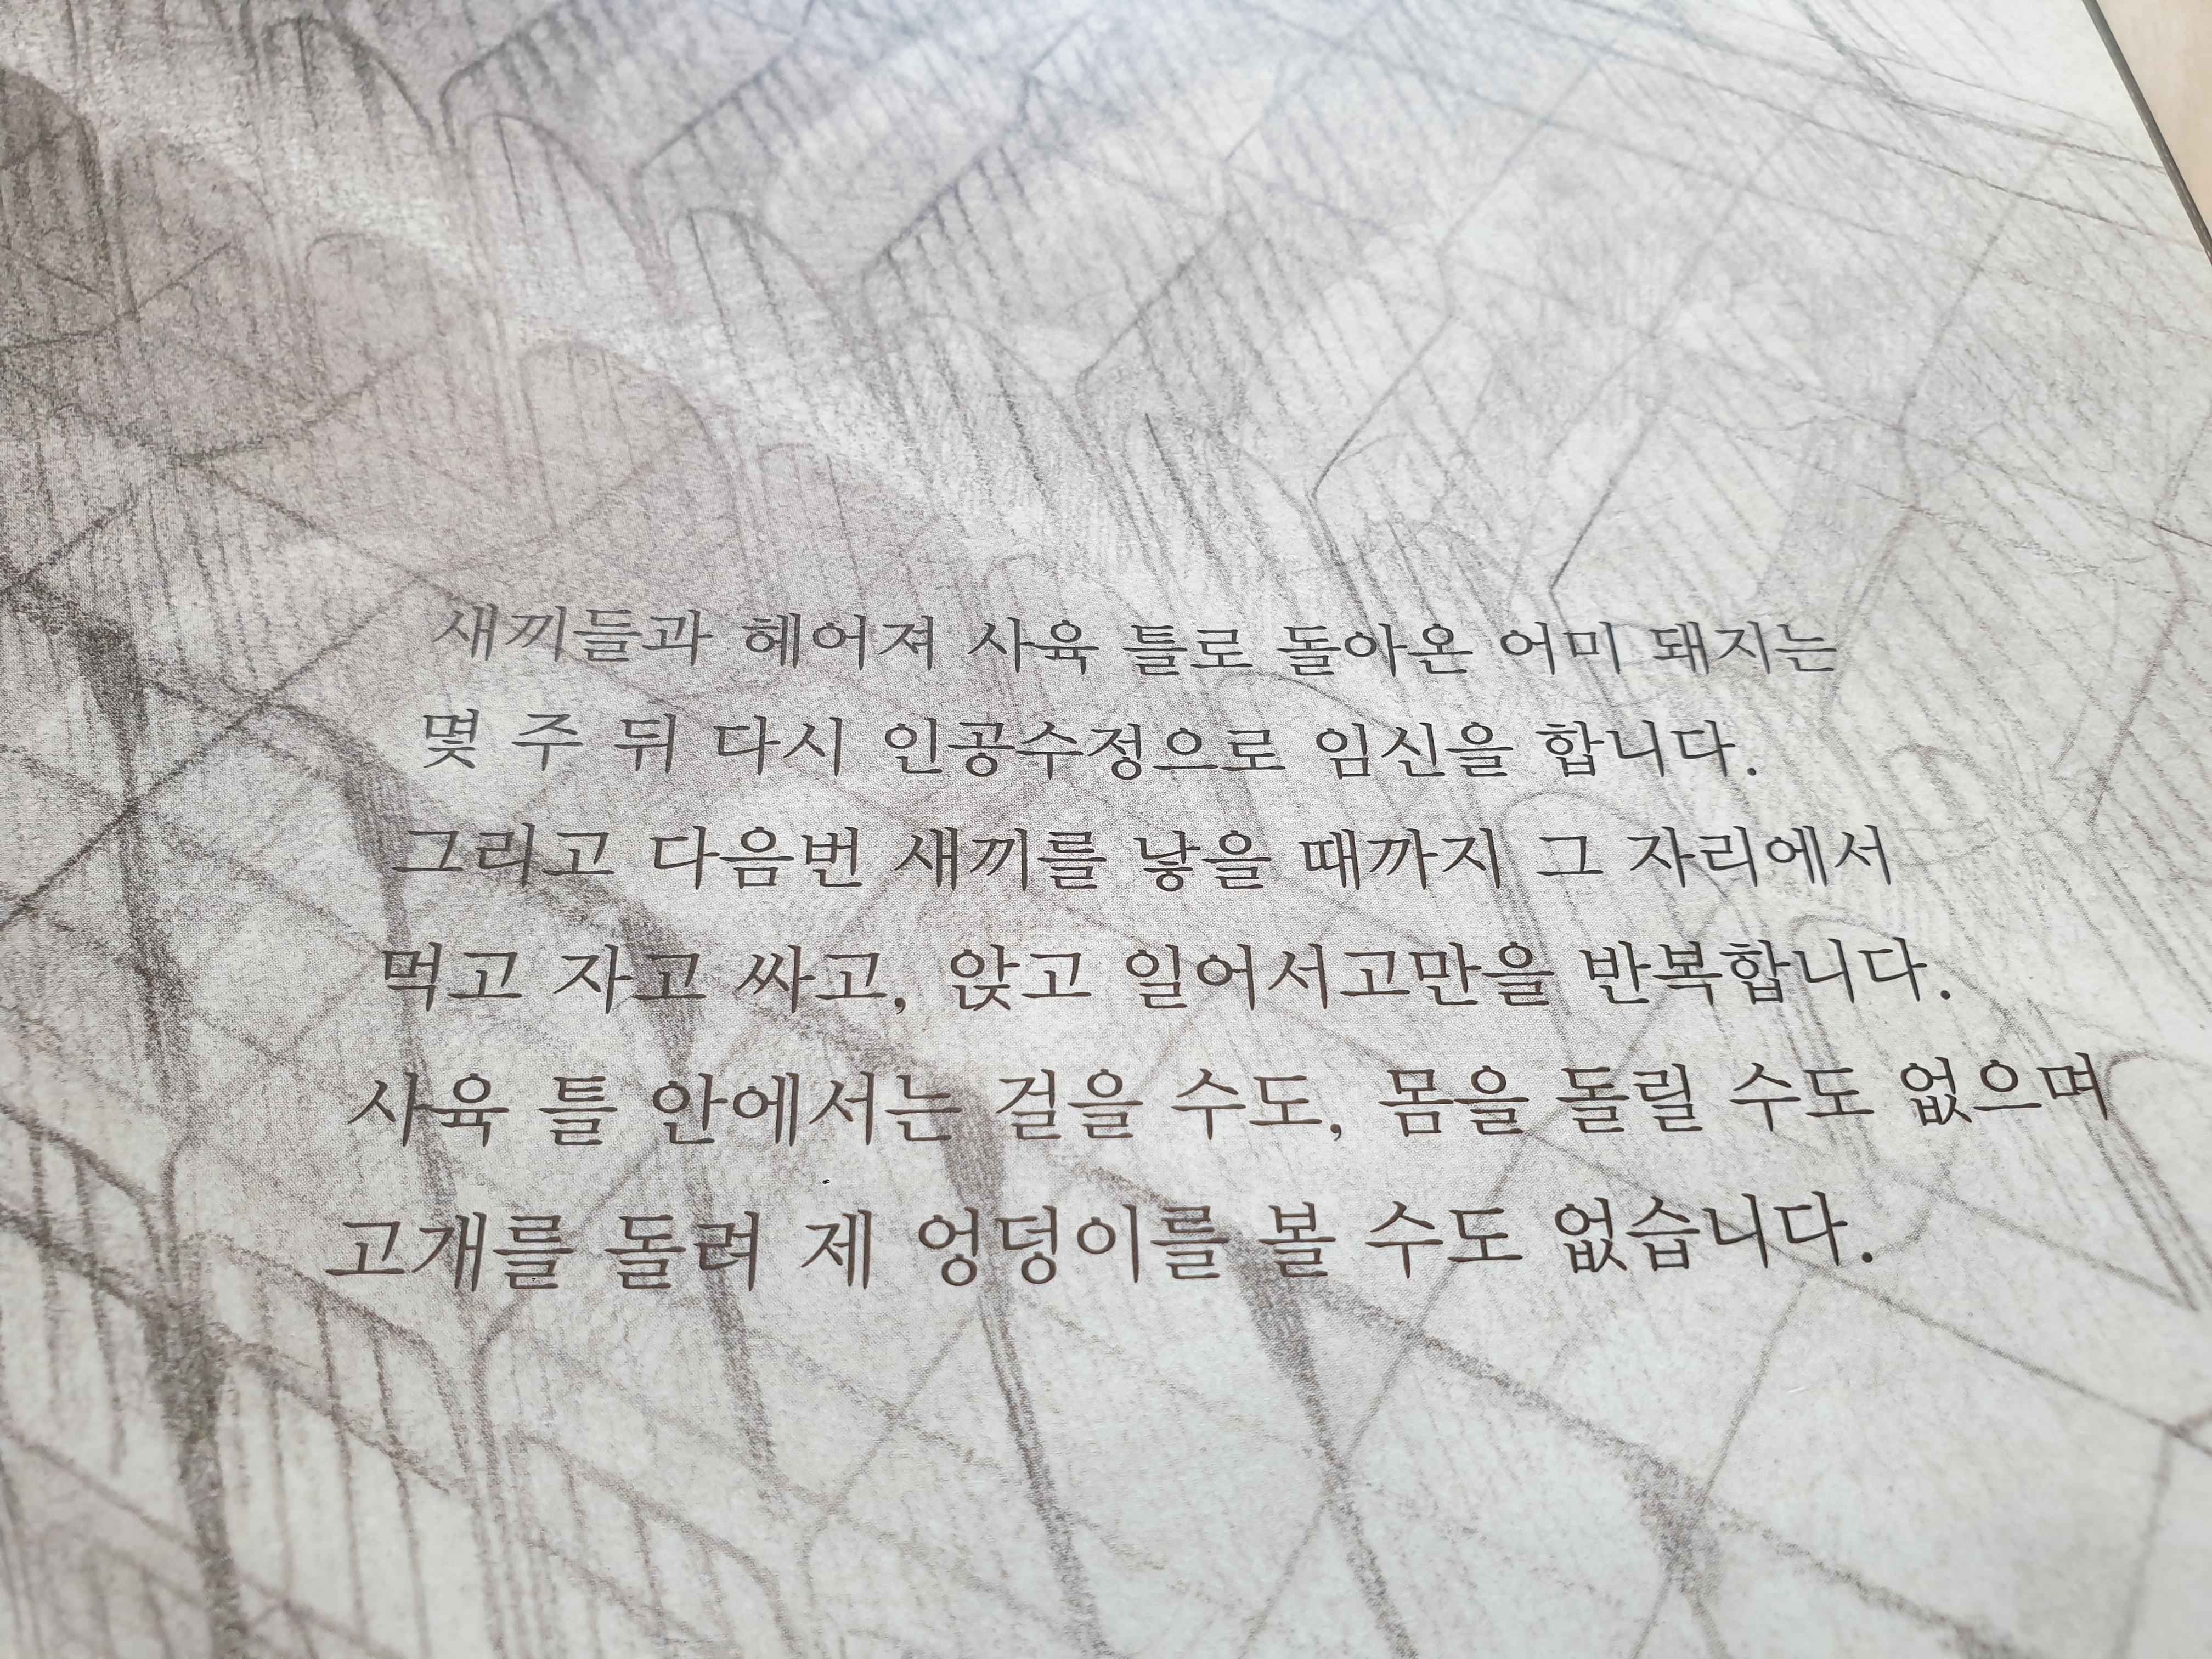 새끼들과 헤어져 사육 틀로 돌아온 어미 돼지는
몇 주 뒤 다시 인공수정으로 임신을 합니다.
그리고 다음번 새끼를 낳을 때까지 그 자리에서
먹고 자고 싸고, 앉고 일어서고만을 반복합니다.
사육 틀 안에서는 걸을 수도, 몸을 돌릴 수도 없으며
고개를 돌려 제 엉덩이를 볼 수도 없습니다.